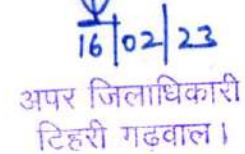 16/02/23
अपर जिलाधिकारी
टिहरी गढवाल।